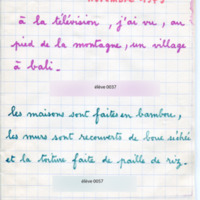 novembre 1975
à la télévision, j'ai vu, au
pied de la montagne, un village
à bali.
élève 0057
les maisons sont faites en bambou,
les murs sont recouverts de boue séchée
et la torture faite de paille de riz.
élève 0057